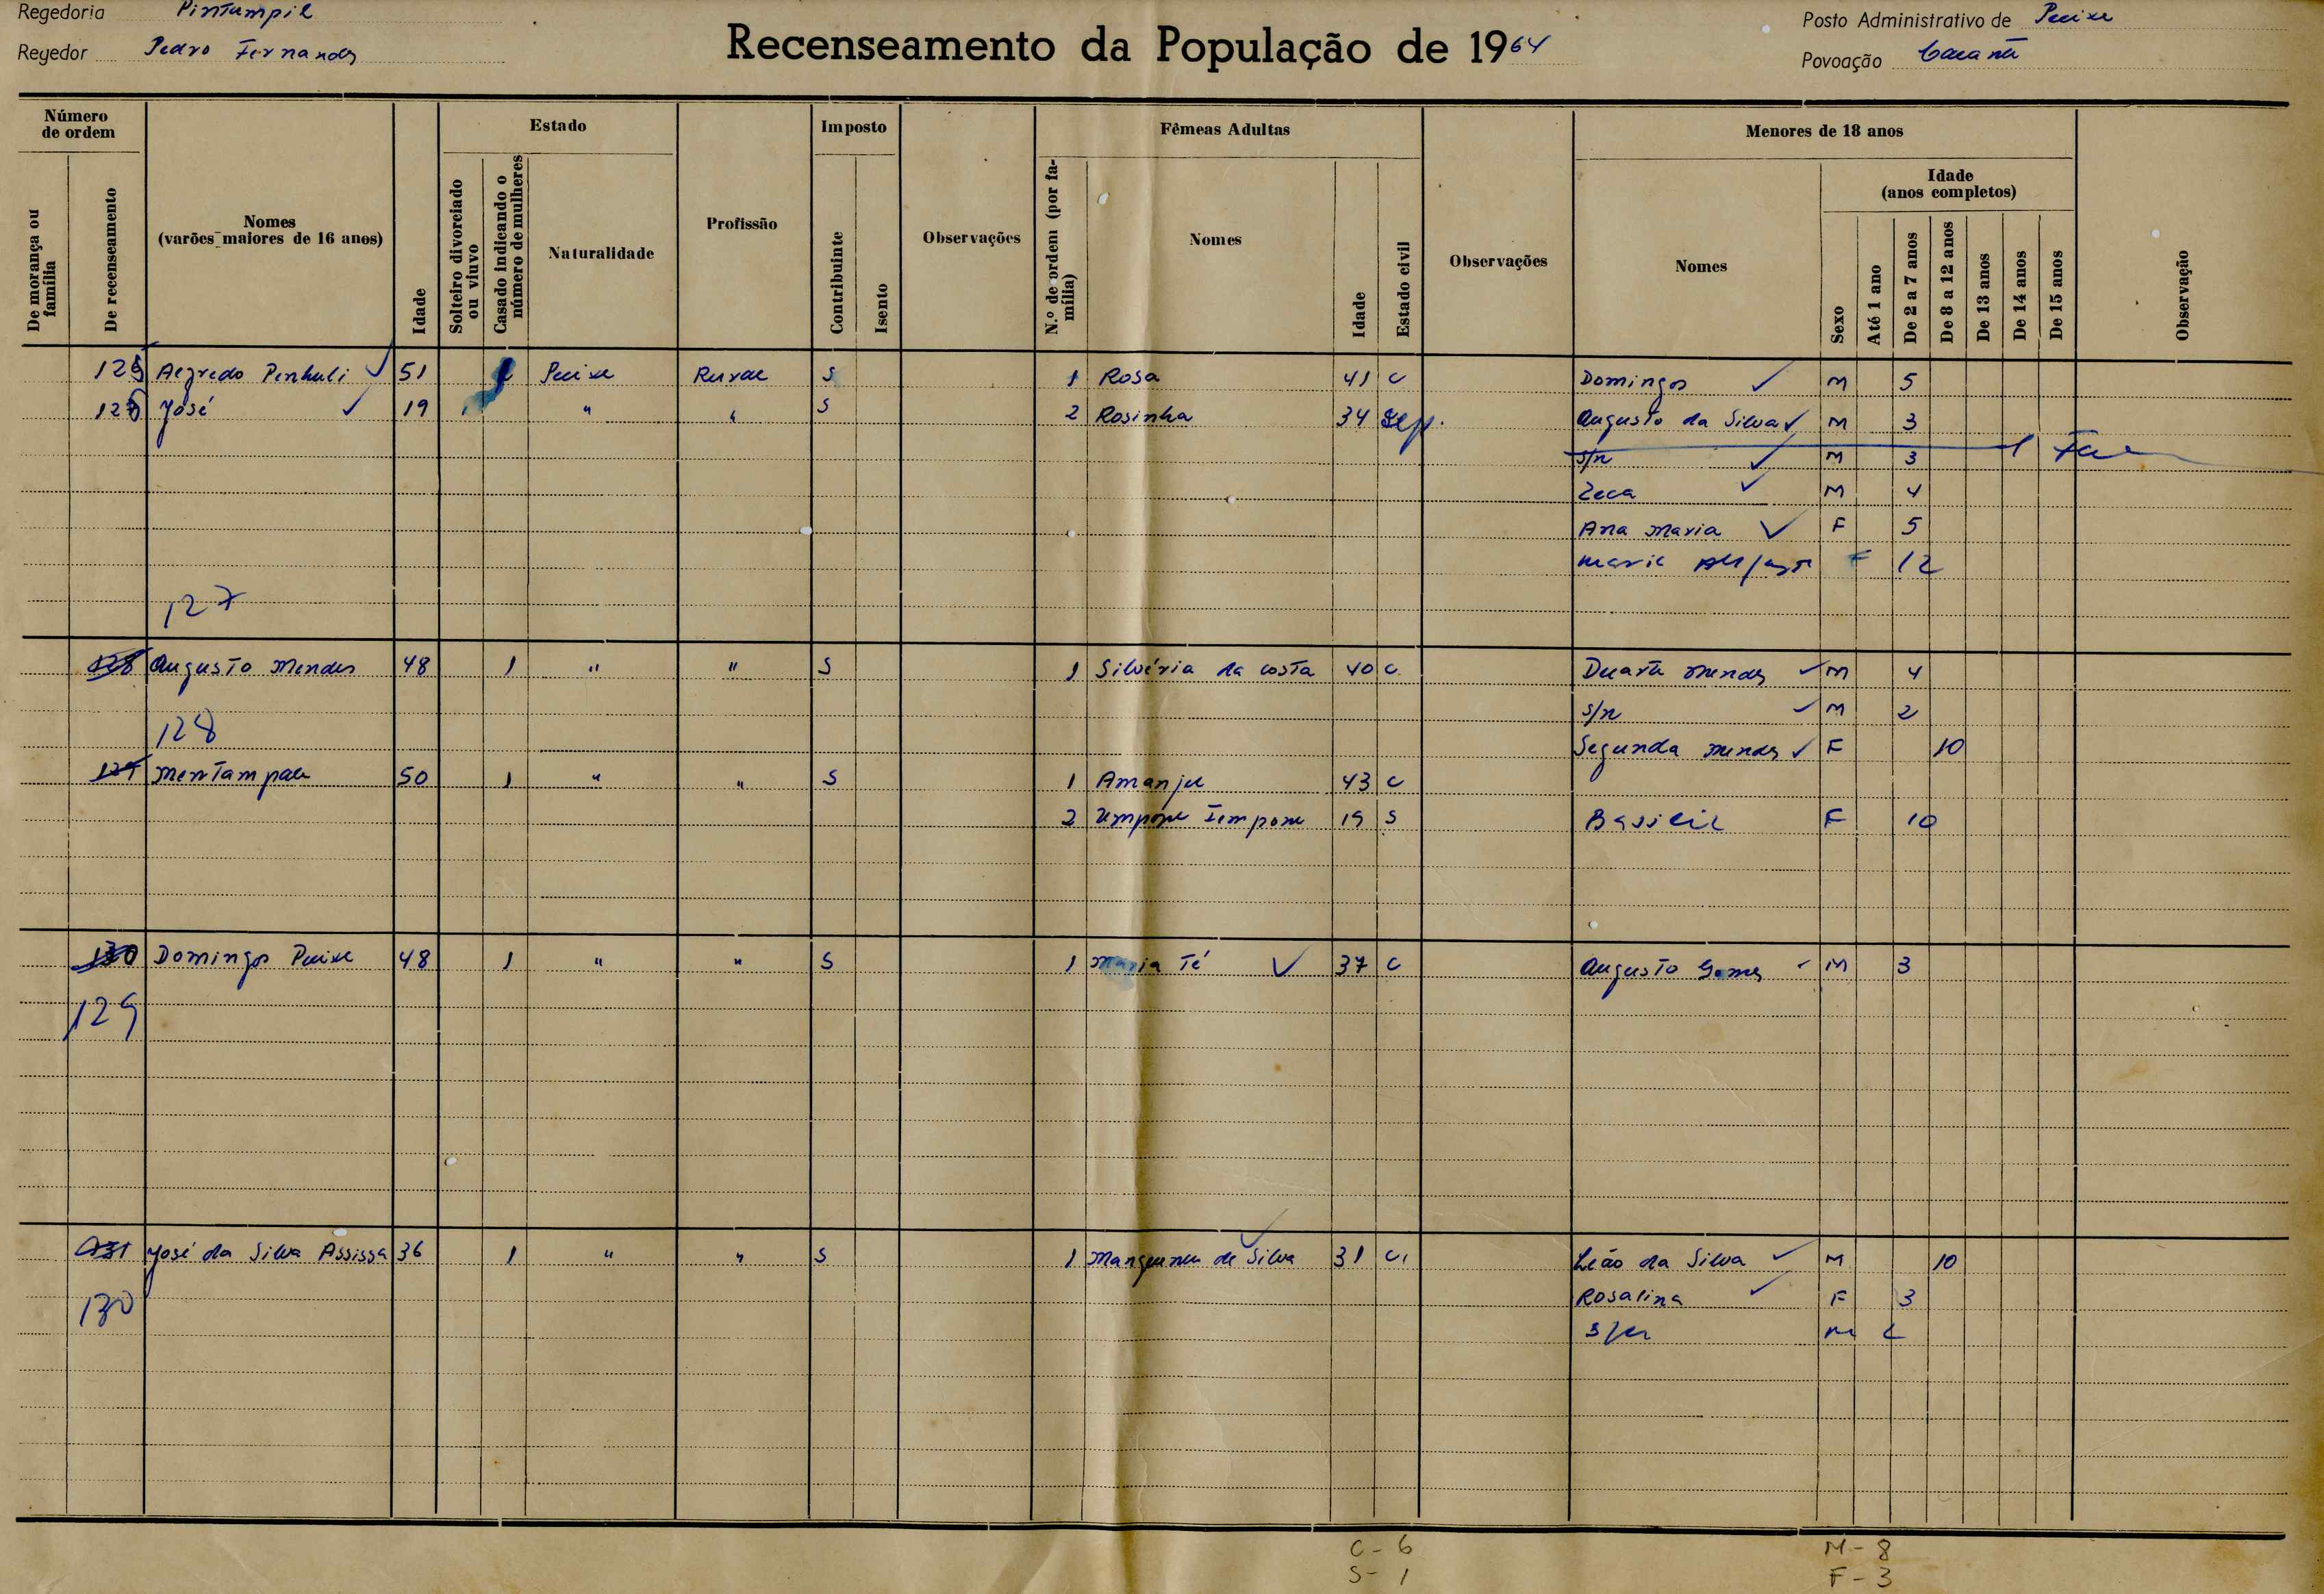 Regedoria Pintampil
Regedor Pedro Fernandes
Recenseamento da População de 1964
Posto Administrativo de Pecixe
Povoação
Número de ordem
De morança ou família
De recenseamento
Nomes (varões maiores de 16 anos)
Idade
Estado
Solteiro divorciado ou viuvo
Casado indicando o número de mulheres
Naturalidade
Profissão
Imposto
Contribuinte
Isento
Observações
Fêmeas Adultas
N.º de ordem (por família)
Nomes
Idade
Estado civil
Observações
Menores de 18 anos
Nomes
Idade (anos completos)
Sexo
Até 1 ano
De 2 a 7 anos
De 8 a 12 anos
De 13 anos
De 14 anos
De 15 anos
Observação
125 Alfredo Penhuli 51 Pecixe Rural S 1 Rosa 41 C Domingos M 5
126 José 19 " " S 2 Rosinha 34 Augusto da Silva M 3
s/n M 3
Zeca M 4
Ana Maria F 5
F 12
127
128 Augusto Mendes 48 1 " " S 1 Silvéria da Costa 40 C Duarte Mendes M 4
s/n M 2
128
Segunda Mendes F 10
129 Mentampale 50 1 " " S 1 Amanjil 43 C
2 19 S F 10
130 Domingos Pecixe 48 1 " " S 1 Maria Té 37 C Augusto Gomes M 3
129
131 José da Silva Assissa 36 1 " " S 1 de Silva 31 C. Leão da Silva M 10
130
Rosalina F 3
s/n M
C - 6
S - 1
M - 8
F - 3